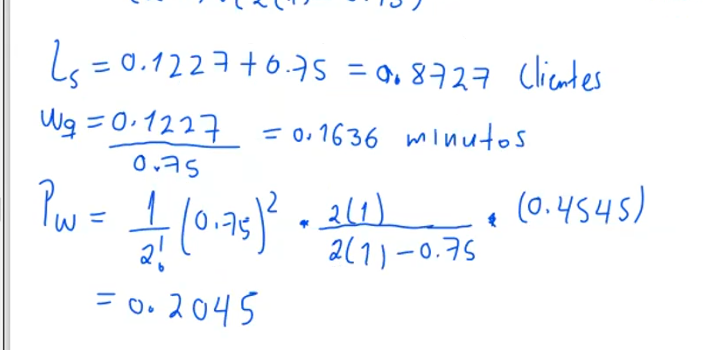 Ls = 0.1227 + 0.75 = 0.8727 Clientes
Wq = 0.1227 / 0.75 = 0.1636 minutos
Pw = 1/2! (0.75)² · 2(1) / 2(1) - 0.75 · (0.4545)
= 0.2045